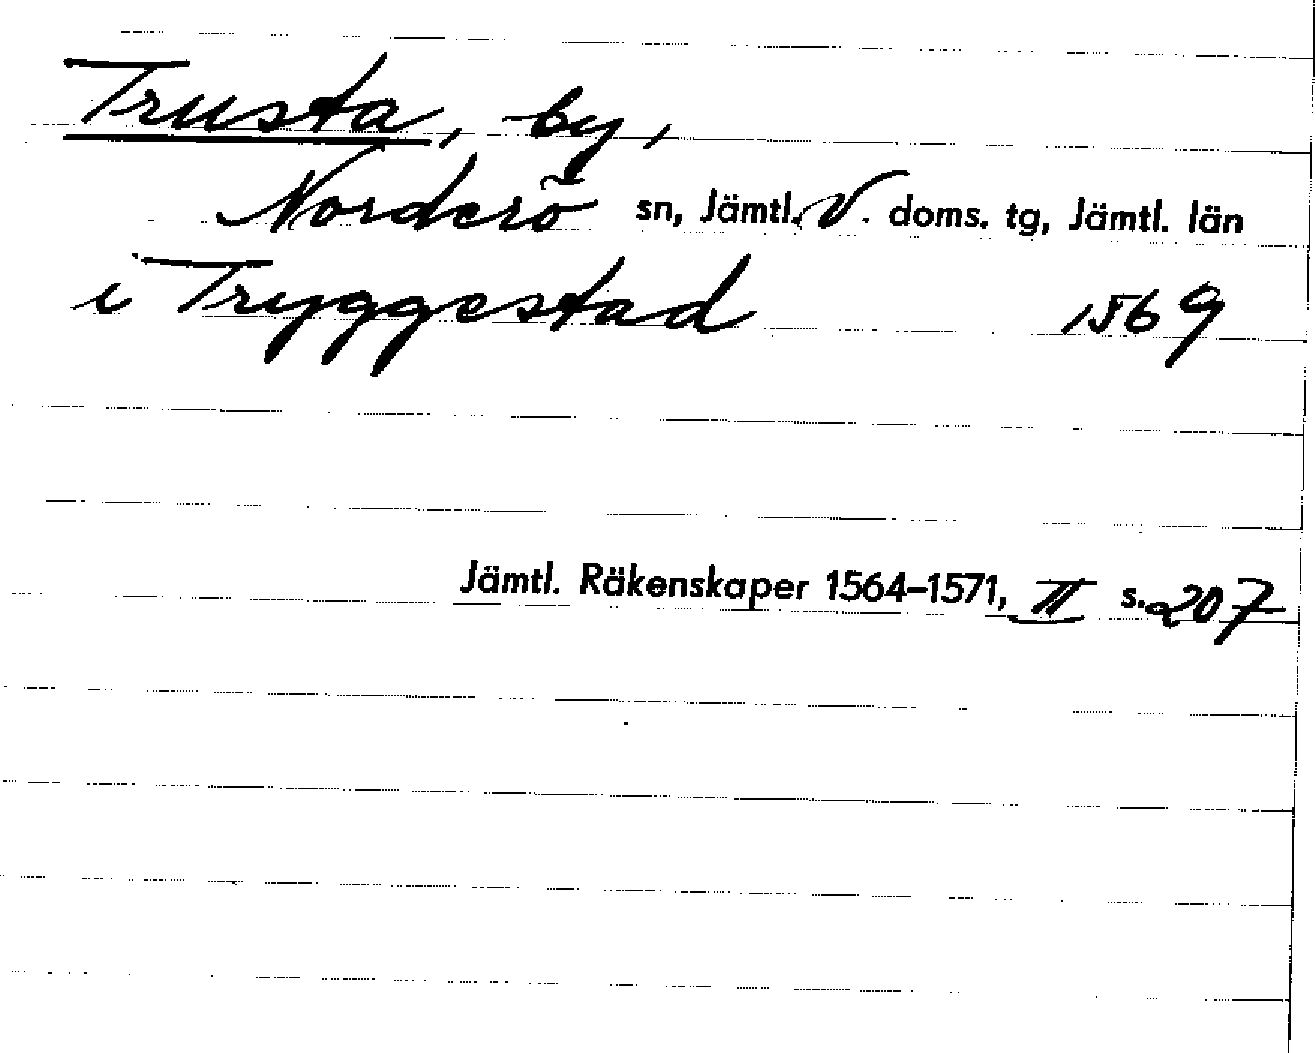 Trusta, by,
Norderö sn, Jämtl. V. doms. tg, Jämtl. län
i Tryggestad 1569
Jämtl. Räkenskaper 1564–1571, II s. 207